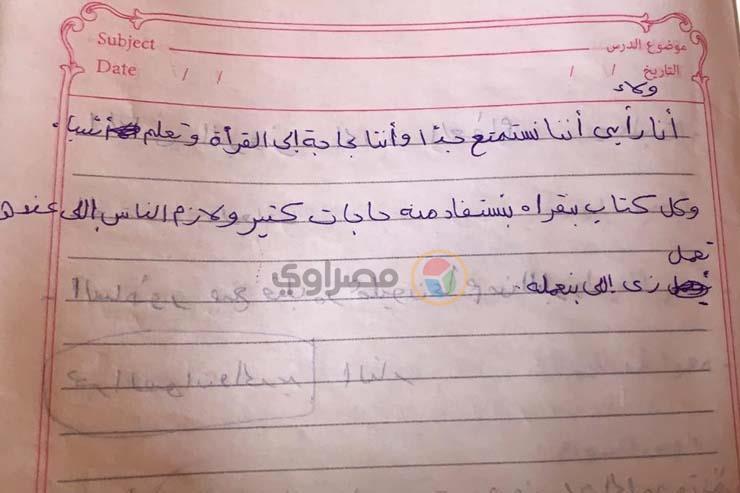 Subject موضوع الدرس
Date / / / / التاريخ
ولاء
أنا رأيي أننا نستمتع جدًا وأننا بحاجة إلى القرأة وتعلم أشياء.
وكل كتاب بنقراه بنستفاد منه حاجات كتير ولازم الناس اللى عندها
تعمل
زى اللى بنعمله.
مصراوي